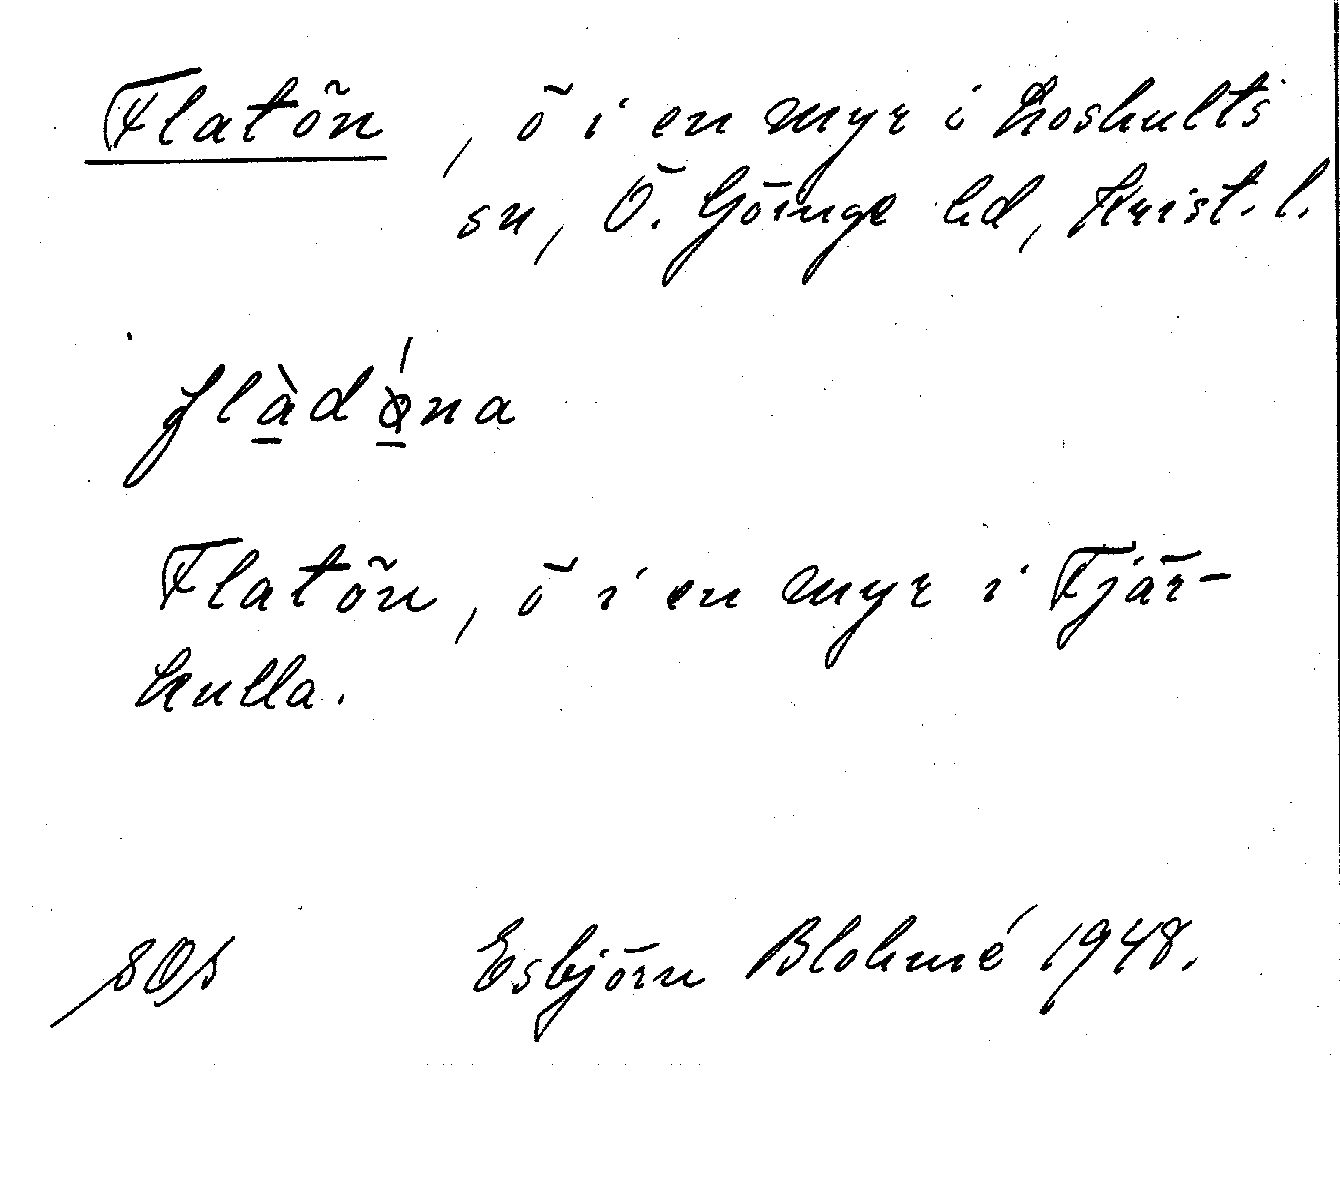 Flatön, ö i en myr i Loshults
sn, Ö. Göinge hd, Krist. l.
flàdǿna
Flatön, ö i en myr i Fjär-
kulla.
Esbjörn Blohmé 1948.